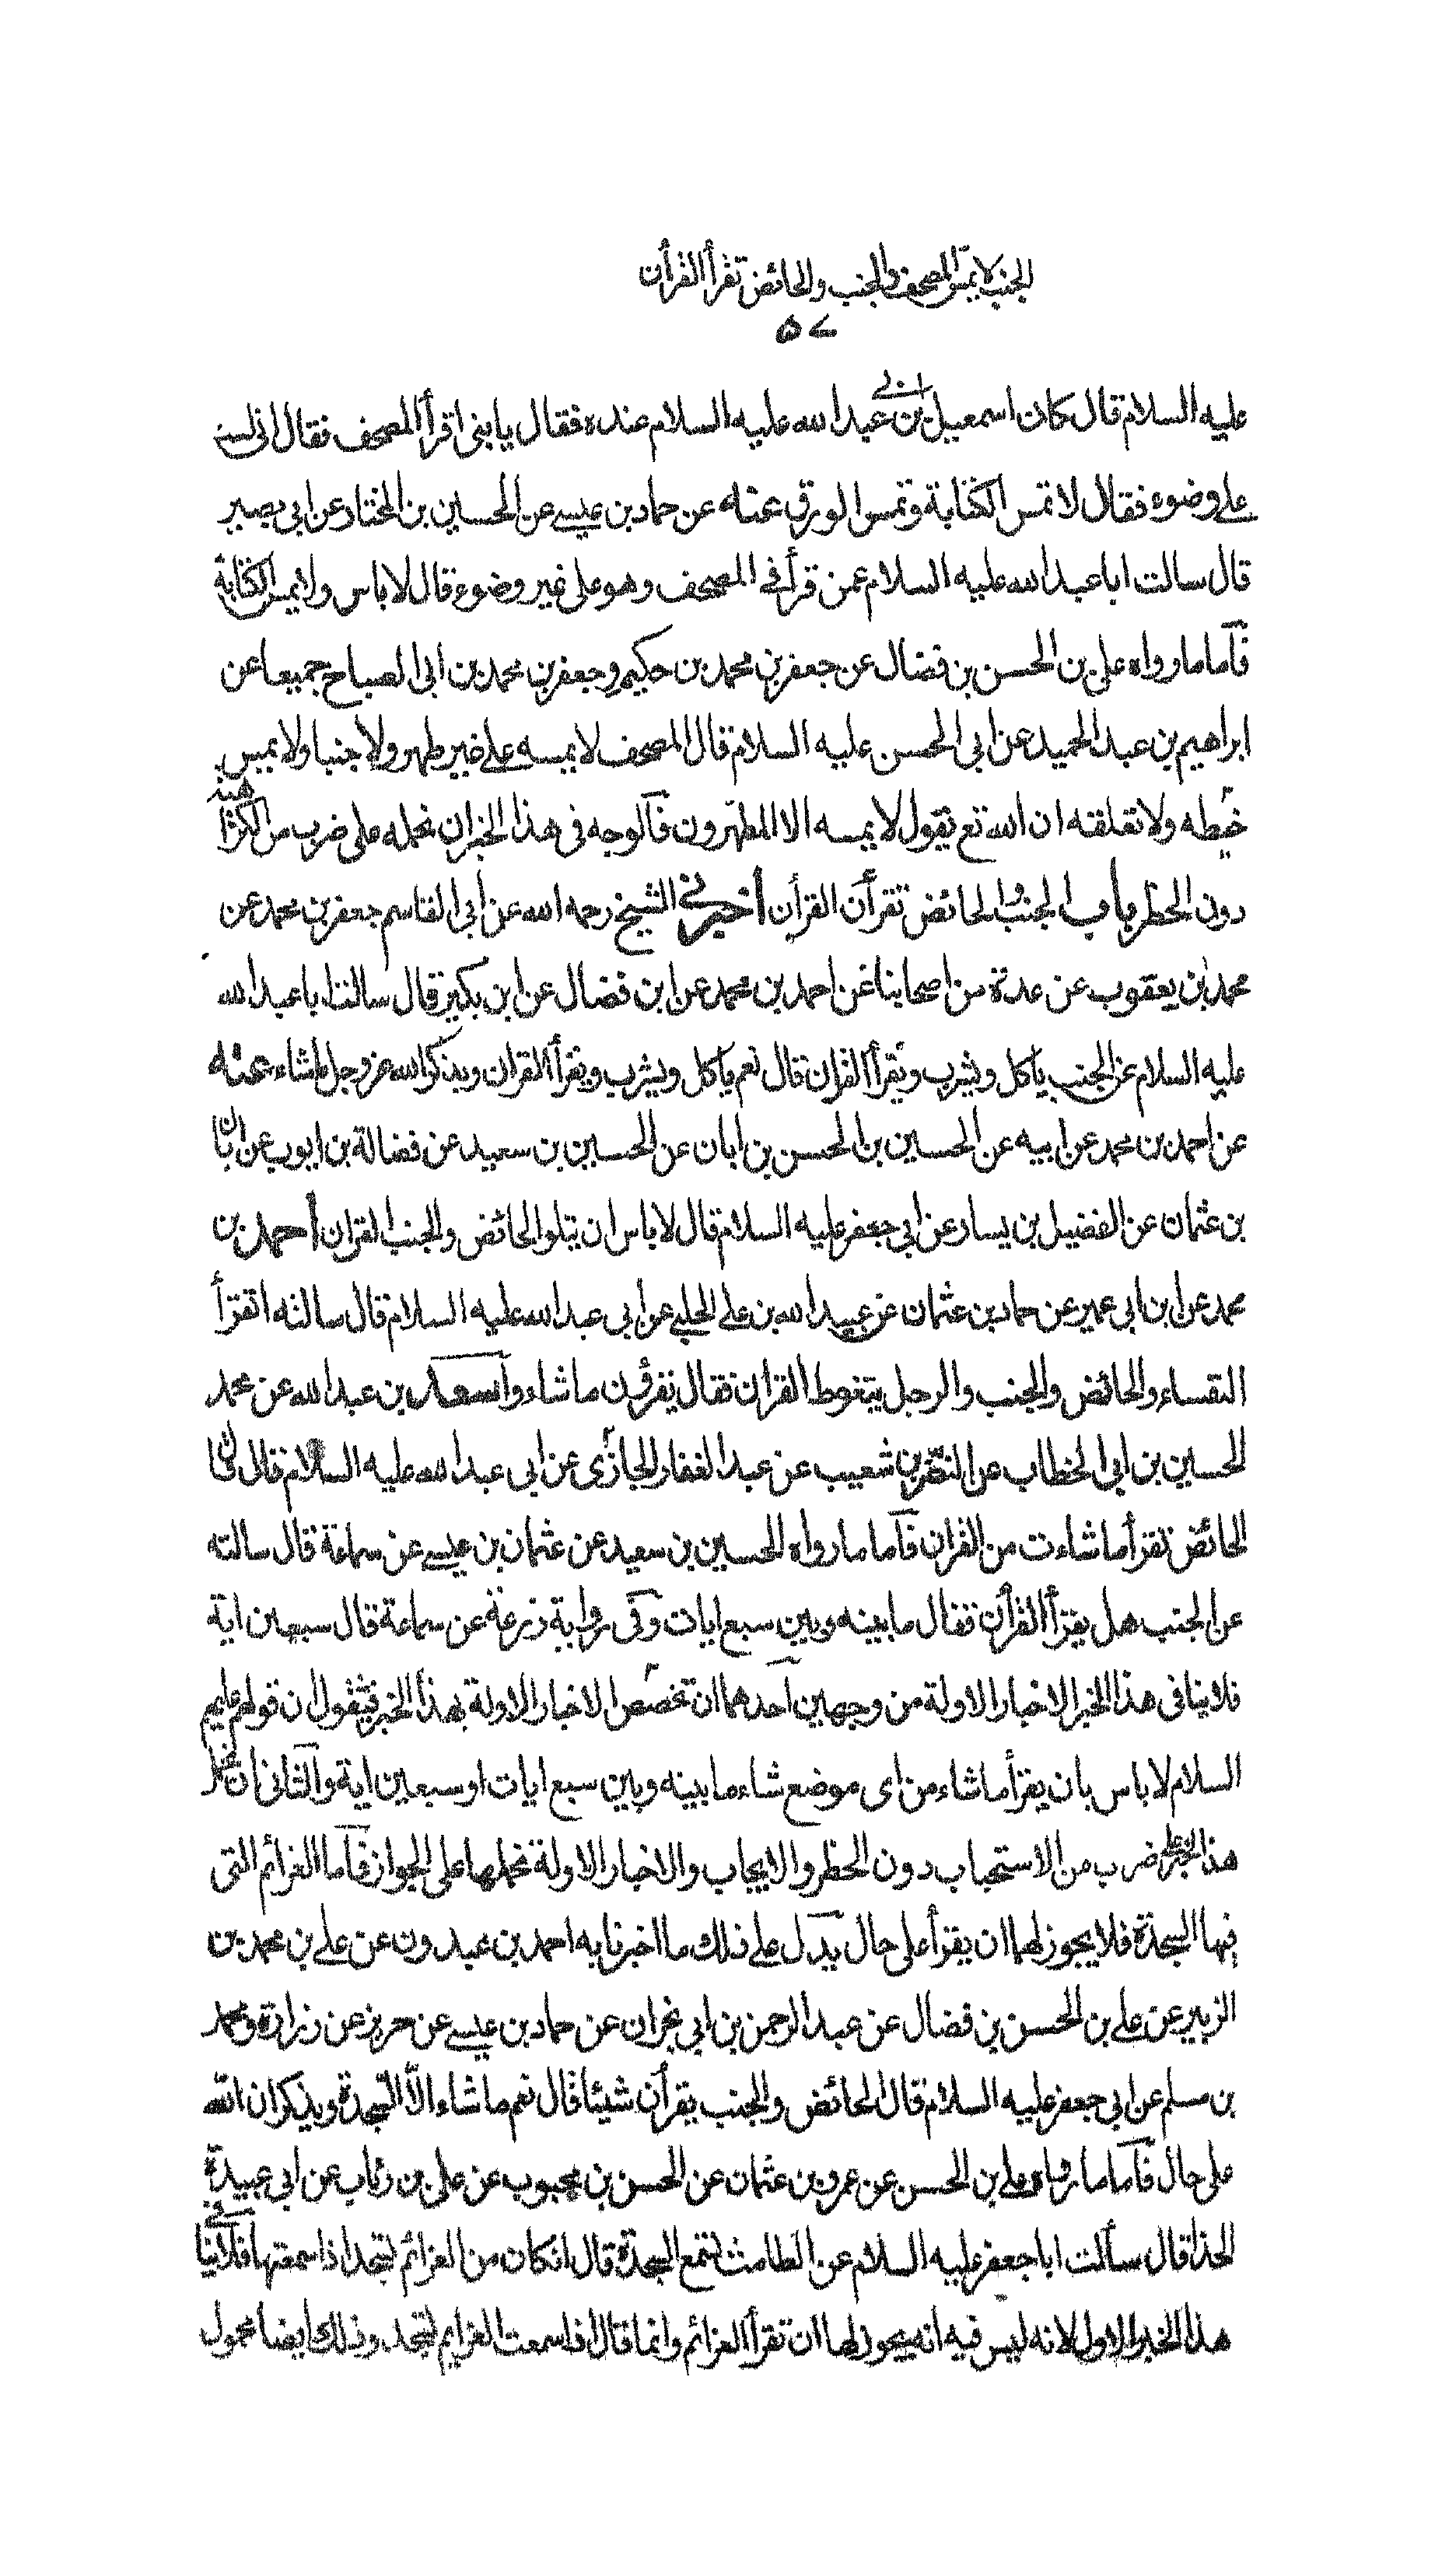 الجنب لا يمس المصحف والجنب والحائض تقرأ القرأن
عليه السلام قال كان اسمعيل بن ابى عبد الله عليه السلام عنده فقال يا بنى اقرأ المصحف فقال انى لست
على وضوء فقال لا تمس الكتابة وتمس الورق عنه عن حماد بن عيسى عن الحسين بن المختار عن ابى بصير
قال سالت ابا عبد الله عليه السلام عمن قرأ في المصحف وهو على غير وضوء قال لا باس ولا يمس الكتابة
فاما ما رواه على بن الحسن بن فضال عن جعفر بن محمد بن حكيم وجعفر بن محمد بن ابى الصباح جميعا عن
ابراهيم بن عبد الحميد عن ابى الحسن عليه السلام قال المصحف لا يمسه على غير طهر ولا جنبا ولا يمس
خيطه ولا تعلقه ان الله تع يقول لا يمسه الا المطهرون فالوجه فى هذا الخبر ان نحمله على ضرب من الكراهية
دون الحظر باب الجنب والحائض تقرأن القرأن أخبرني الشيخ رحمه الله عن ابى القاسم جعفر بن محمد عن
محمد بن يعقوب عن عدة من اصحابنا عن احمد بن محمد عن ابن فضال عن ابن بكير قال سالت ابا عبد الله
عليه السلام عن الجنب يأكل ويشرب ويقرأ القران قال نعم يأكل ويشرب ويقرأ القران ويذكر الله عز وجل ما شاء عنه
عن احمد بن محمد عن ابيه عن الحسين بن الحسن بن ابان عن الحسين بن سعيد عن فضالة بن ايوب عن ابان
بن عثمان عن الفضيل بن يسار عن ابى جعفر عليه السلام قال لا باس ان يتلو الحائض والجنب القران أحمد بن
محمد عن ابن ابى عمير عن حماد بن عثمان عن عبيد الله بن على الحلبى عن ابى عبد الله عليه السلام قال سالته اتقرأ
النفساء والحائض والجنب والرجل يتغوط القران فقال يقرؤن ما شاء وا سعد بن عبد الله عن محمد
الحسين بن ابى الخطاب عن النضر بن شعيب عن عبد الغفار الجازى عن ابى عبد الله عليه السلام قال قال
الحائض تقرأ ما شاءت من القران فاما ما رواه الحسين بن سعيد عن عثمان بن عيسى عن سماعة قال سالته
عن الجنب هل يقرأ القرأن فقال ما بينه وبين سبع ايات وفى رواية زرعة عن سماعة قال سبعين اية
فلا ينافى هذا الخبر الاخبار الاولة من وجهين احدهما ان نخصص الاخبار الاولة بهذا الخبر فنقول ان قولهم عليهم
السلام لا باس بان يقرأ ما شاء من اى موضع شاء ما بينه وبين سبع ايات او سبعين اية والثانى ان نحمل
هذا الخبر على ضرب من الاستحباب دون الحظر والايجاب والاخبار الاولة نحملها على الجواز فاما العزائم التى
فيها السجدة فلا يجوز لهما ان يقرأ على حال يدل على ذلك ما اخبرنا به احمد بن عبدون عن على بن محمد بن
الزبير عن على بن الحسن بن فضال عن عبد الرحمن بن ابى نجران عن حماد بن عيسى عن حريز عن زرارة ومحمد
بن مسلم عن ابى جعفر عليه السلام قال الحائض والجنب يقرأن شيئا قال نعم ما شاء الا السجدة ويذكران الله
على حال فاما ما رواه على بن الحسن عن عمرو بن عثمان عن الحسن بن محبوب عن على بن رئاب عن ابى عبيدة
الحذا قال سألت ابا جعفر عليه السلام عن الطامث تسمع السجدة قال ان كان من العزائم تسجد اذا سمعتها فلا ينافى
هذا الخبر الاول لانه ليس فيه انه يجوز لها ان تقرأ العزائم وانما قال اذا سمعت العزايم تسجد وذلك ايضا محمول